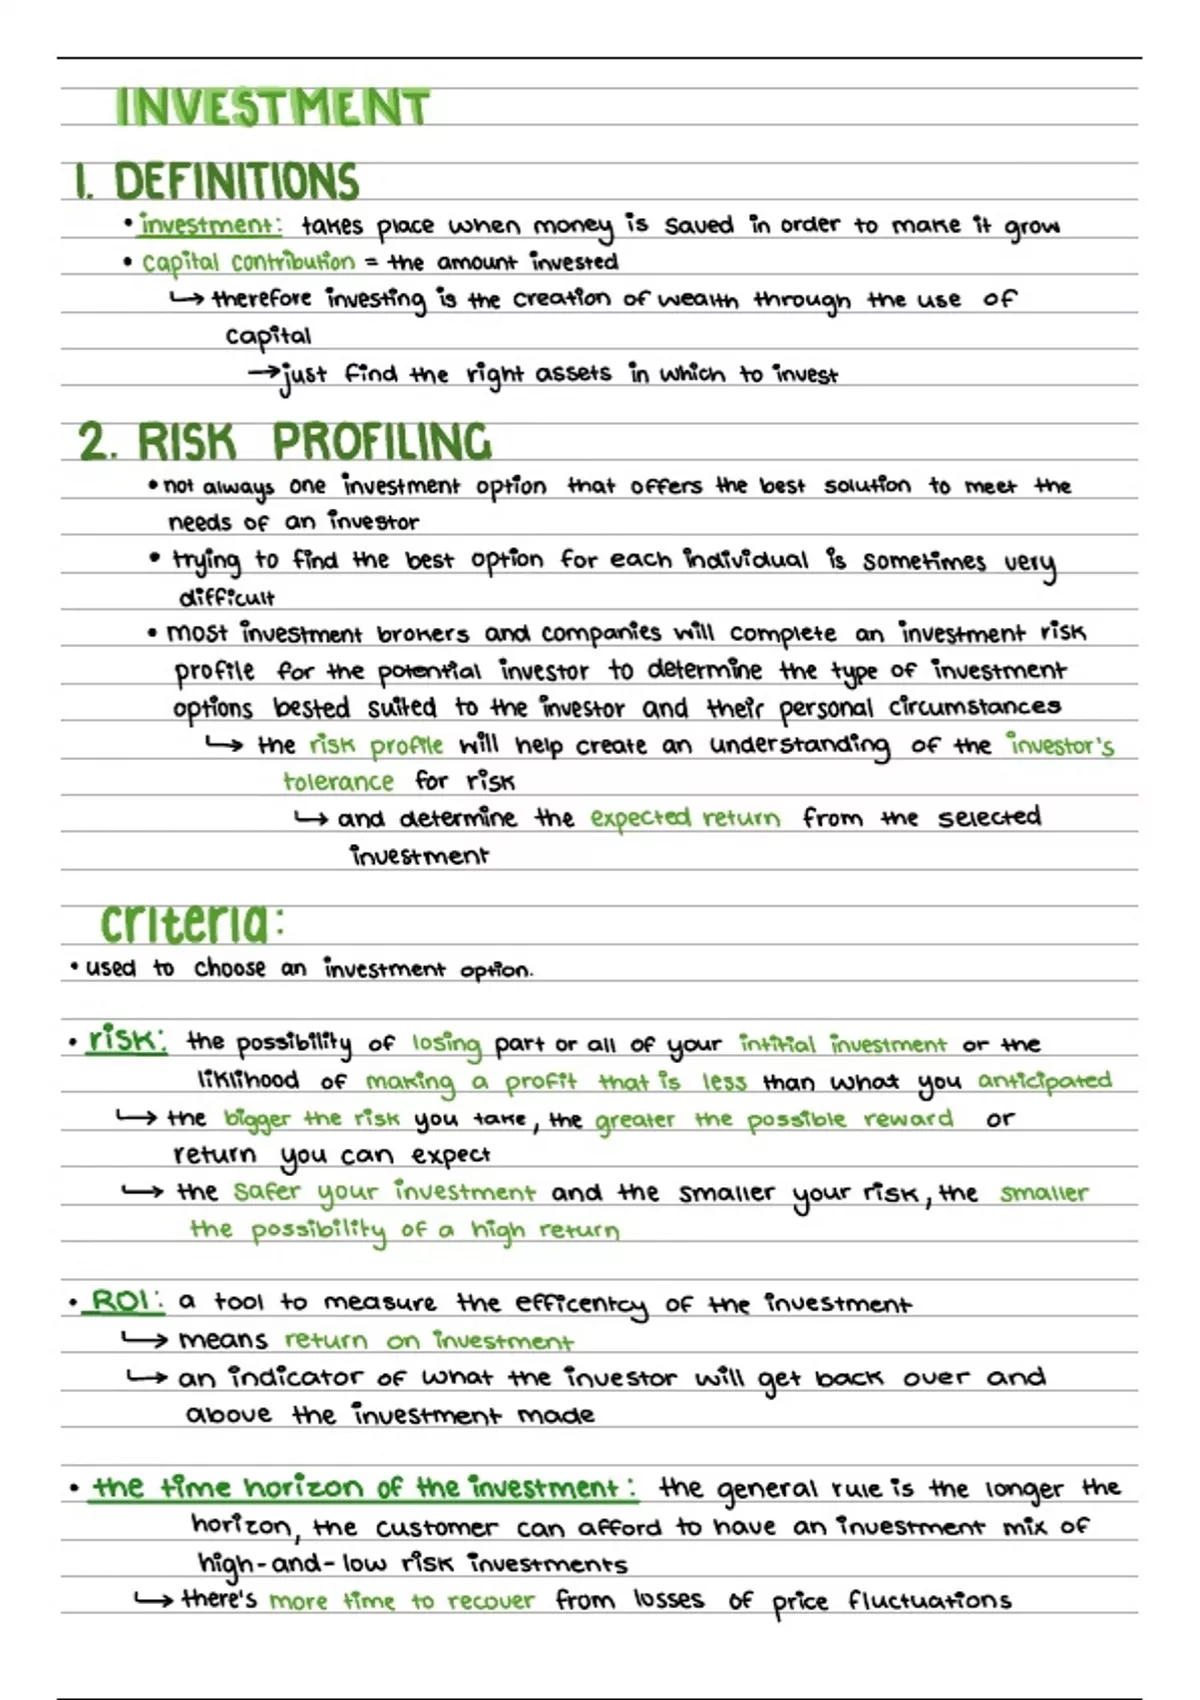 INVESTMENT
1. DEFINITIONS
• investment: takes place when money is saved in order to make it grow
• capital contribution = the amount invested
↳ therefore investing is the creation of wealth through the use of
capital
→ just find the right assets in which to invest
2. RISK PROFILING
• not always one investment option that offers the best solution to meet the
needs of an investor
• trying to find the best option for each individual is sometimes very
difficult
• most investment brokers and companies will complete an investment risk
profile for the potential investor to determine the type of investment
options bested suited to the investor and their personal circumstances
↳ the risk profile will help create an understanding of the investor's
tolerance for risk
↳ and determine the expected return from the selected
investment
criteria:
• used to choose an investment option.
• risk: the possibility of losing part or all of your intitial investment or the
liklihood of making a profit that is less than what you anticipated
↳ the bigger the risk you take, the greater the possible reward or
return you can expect
↳ the safer your investment and the smaller your risk, the smaller
the possibility of a high return
• ROI: a tool to measure the efficentcy of the investment
↳ means return on investment
↳ an indicator of what the investor will get back over and
above the investment made
• the time horizon of the investment: the general rule is the longer the
horizon, the customer can afford to have an investment mix of
high-and-low risk investments
↳ there's more time to recover from losses of price fluctuations